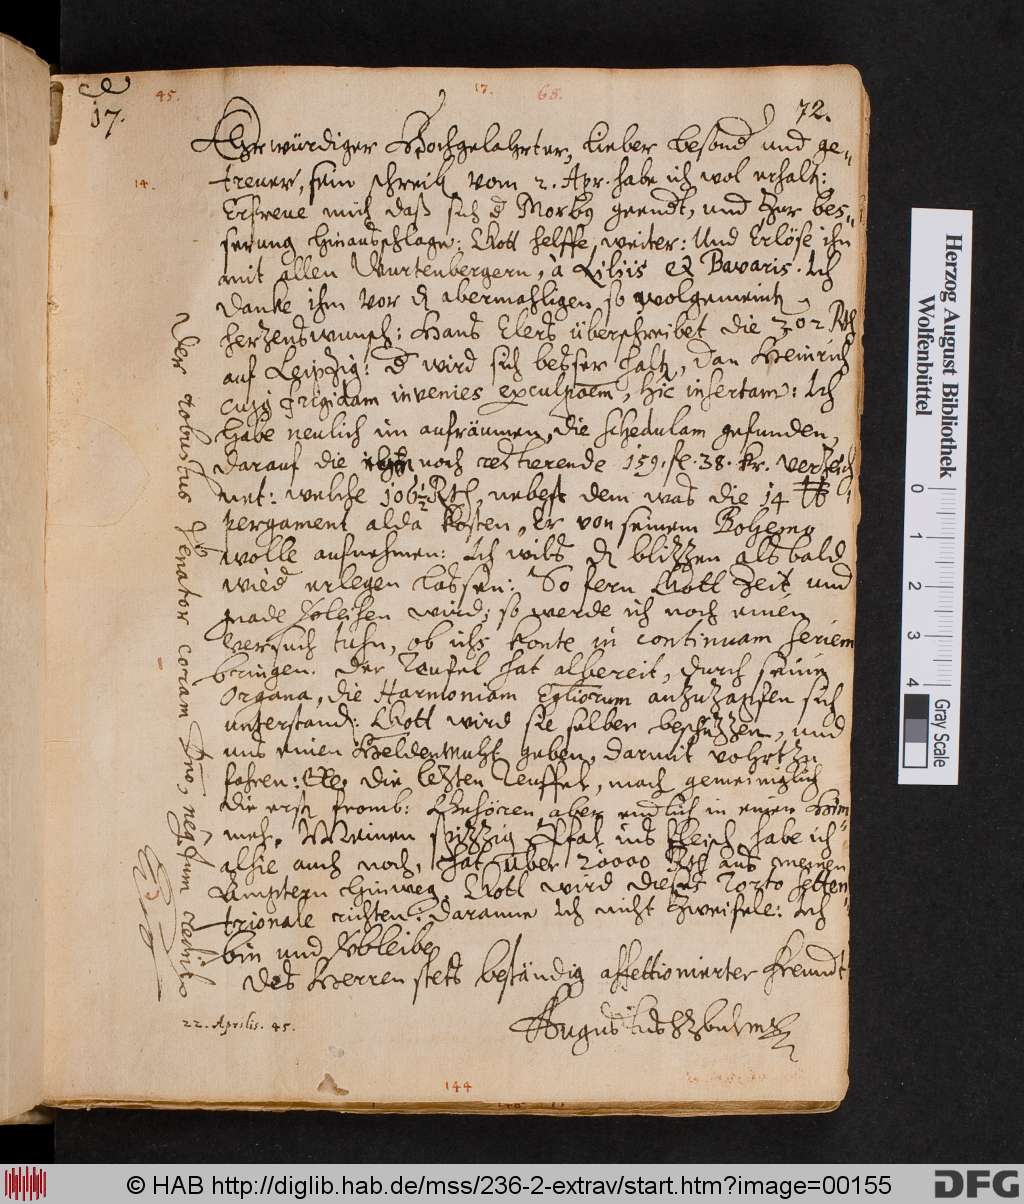 17.
45.
17.
68.
72.
14.
Ehrwürdiger Hochgelahrter, Lieber besond und ge-
treuer, sein schreib vom 2. Apr. habe ich wol erhalt:
Erfreue mich daß sich d Morbg geendt, und zur bes-
serung hinausschlage: Gott helffe, weiter: Und Erlöse ihn
mit allen Wurtenbergern, à Liliis et Bavaris. Ich
danke ihm vor d abermahligen, so wolgemeint
herzenswunsch: Hans Elers überschreibet die 302 Rth
auf Leipzig: d wird sich besser halt, dan Heinrich
frigidam invenies exculpaoem, hic insertam: Ich
habe neulich im aufräumen, die schedulam gefunden,
darauf die noch restierende 159. fl. 38. kr. verzeich
net: welche 106½ Rth, nebest dem was die 14 ℔
pergament alda kosten, Er von seinem Bohemo
wolle aufnehmen: Ich wils d alsbald
wied erlegen lassen: So fern Gott Zeit und
gnade verleihen wird; so werde ich noch einen
versuch tuhn, ob ichs konte in continuam seriem
bringen. Der Teufel hat albereit, durch seine
Organa, die Harmoniam anzuzapfen sich
unterstand: Gott wird sie selber beschüzzen, und
uns einen Heldenmuht geben, darmit vohrtzu
fahren: die lezten Teuffel, mach gemeiniglich
die erst fromb: Gehören aber endlich in einen Him-
mel. Meinen spizzig Pfal ins Fleisch habe ich
alhie auch noch, hat über 20000 Rth aus meinen
Ämptern hinweg. Gott wird dieses Torto setten-
trionale richten: daranne Ich nicht zweifele: Ich
bin und verbleibe
Des Herren stets beständig affettionierter Freundt
Augustus HzBuLm
22. Aprilis. 45.
Der robustus Senator coram Dno, negatum
144
Herzog August Bibliothek
Wolfenbüttel
0 1 2 3 4
Gray Scale
© HAB http://diglib.hab.de/mss/236-2-extrav/start.htm?image=00155
DFG